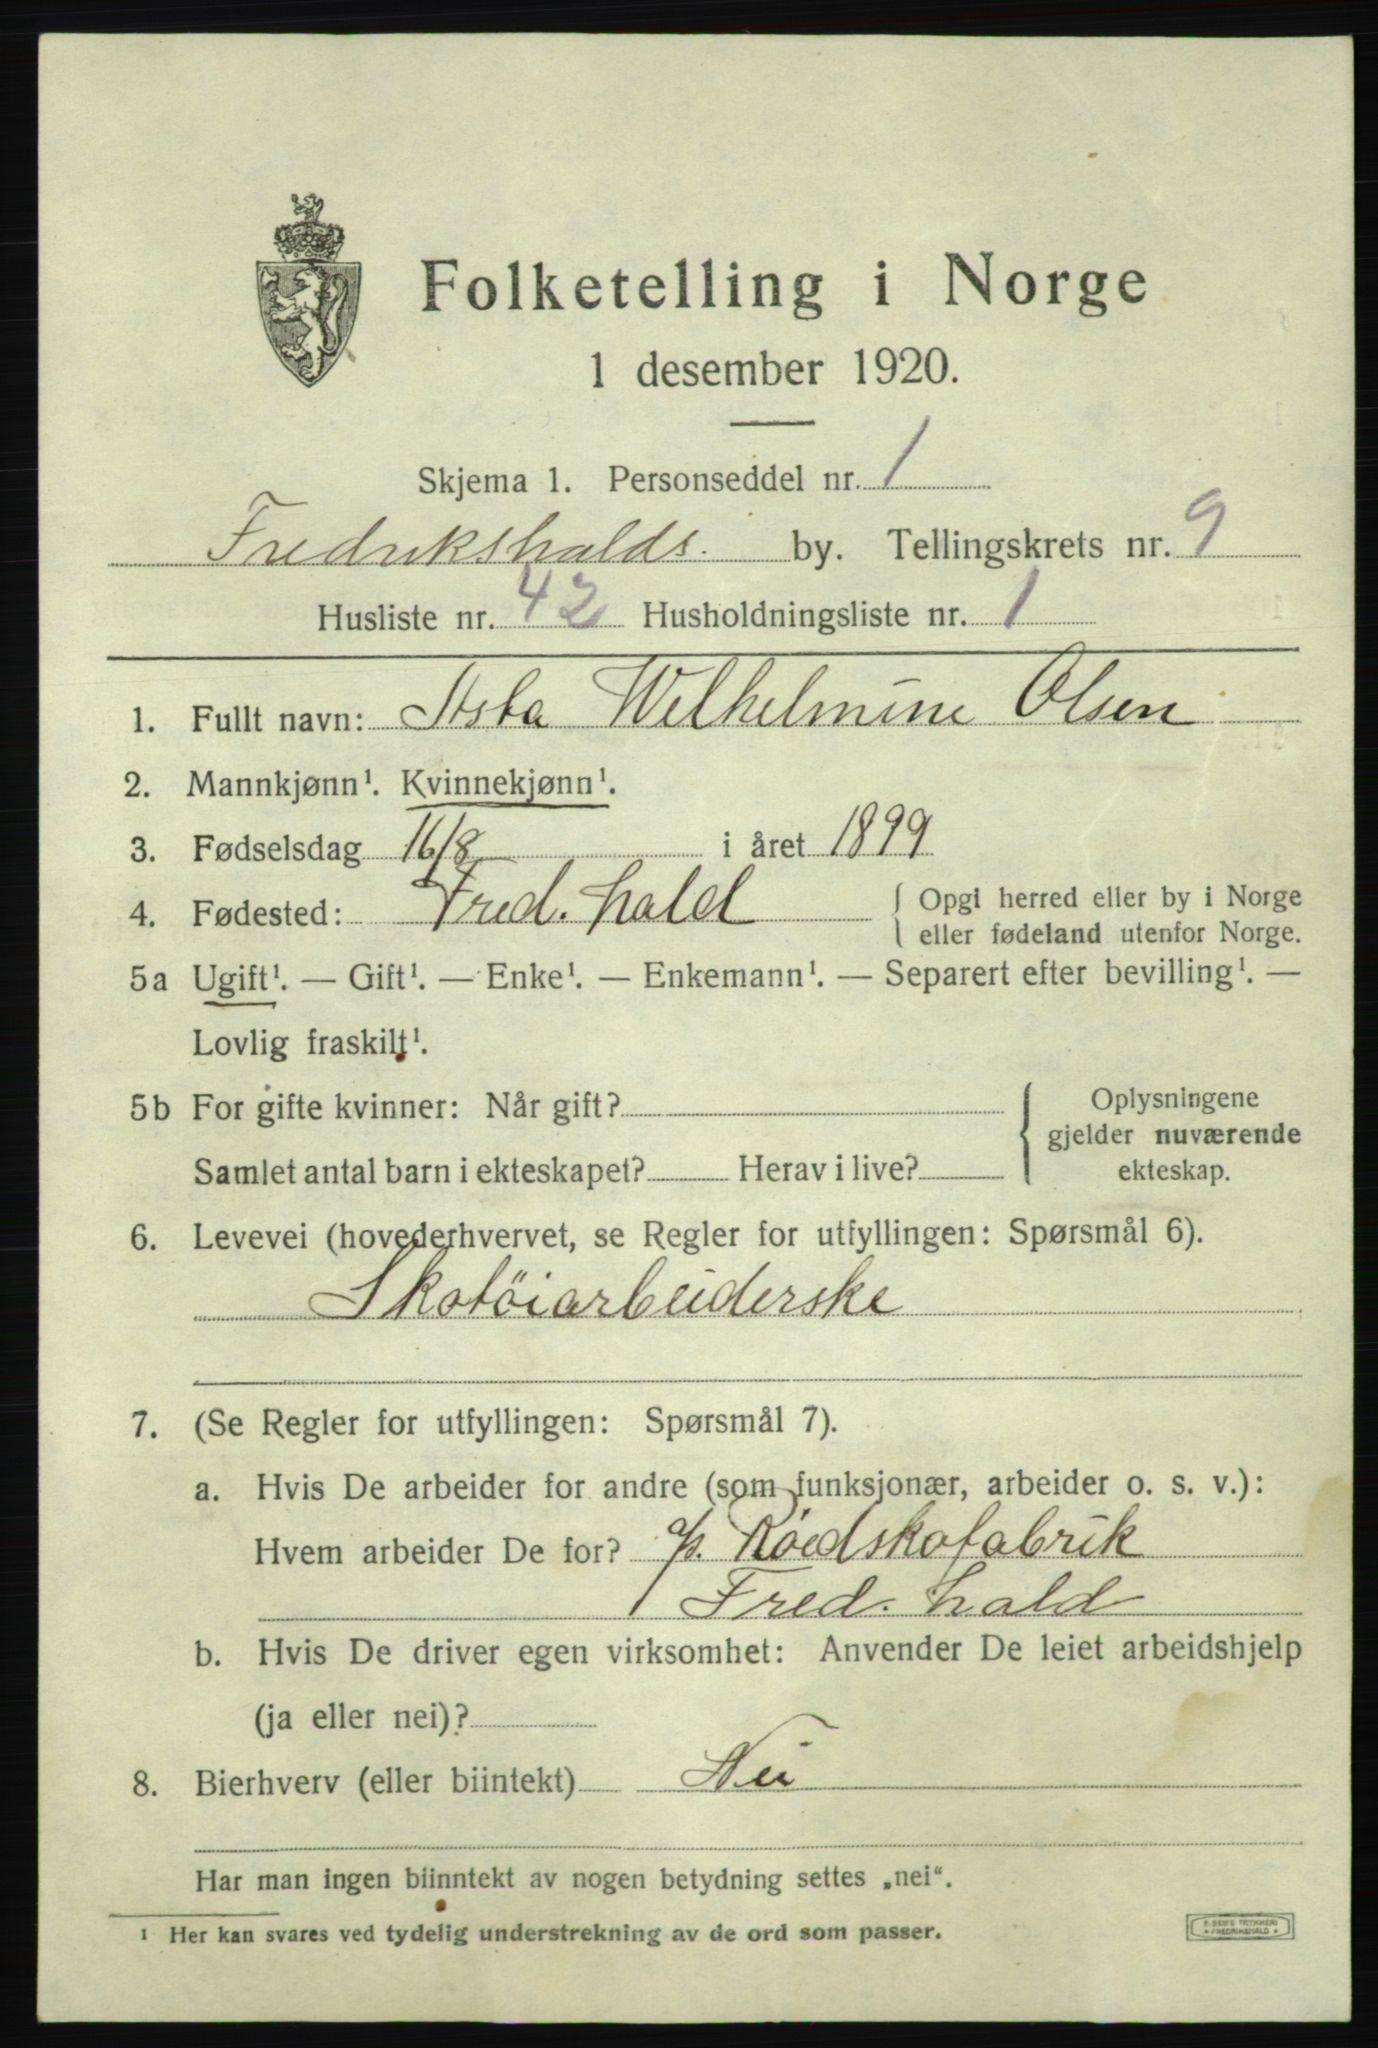 Folketelling i Norge
1 desember 1920.
Skjema 1. Personseddel nr. 1
Fredrikshalds. by. Tellingskrets nr. 9
Husliste nr. 42 Husholdningsliste nr. 1
1. Fullt navn: Asta Wilhelmine Olsen
2. Mannkjønn¹. Kvinnekjønn¹.
3. Fødselsdag 16/8 i året 1899
4. Fødested: Fred.hald { Opgi herred eller by i Norge
eller fødeland utenfor Norge.
5a Ugift¹. — Gift¹. — Enke¹. — Enkemann¹. — Separert efter bevilling¹. —
Lovlig fraskilt¹.
5b For gifte kvinner: Når gift? { Oplysningene
gjelder nuværende
Samlet antal barn i ekteskapet? Herav i live? ekteskap.
6. Levevei (hovederhvervet, se Regler for utfyllingen: Spørsmål 6).
Skotöiarbeiderske
7. (Se Regler for utfyllingen: Spørsmål 7).
a. Hvis De arbeider for andre (som funksjonær, arbeider o. s. v.):
Hvem arbeider De for? a/s. Röedskofabrik
Fred.hald
b. Hvis De driver egen virksomhet: Anvender De leiet arbeidshjelp
(ja eller nei)?
8. Bierhverv (eller biintekt) Nei
Har man ingen biinntekt av nogen betydning settes „nei“.
¹ Her kan svares ved tydelig understrekning av de ord som passer.
TRYKKERI
FREDRIKSHALD